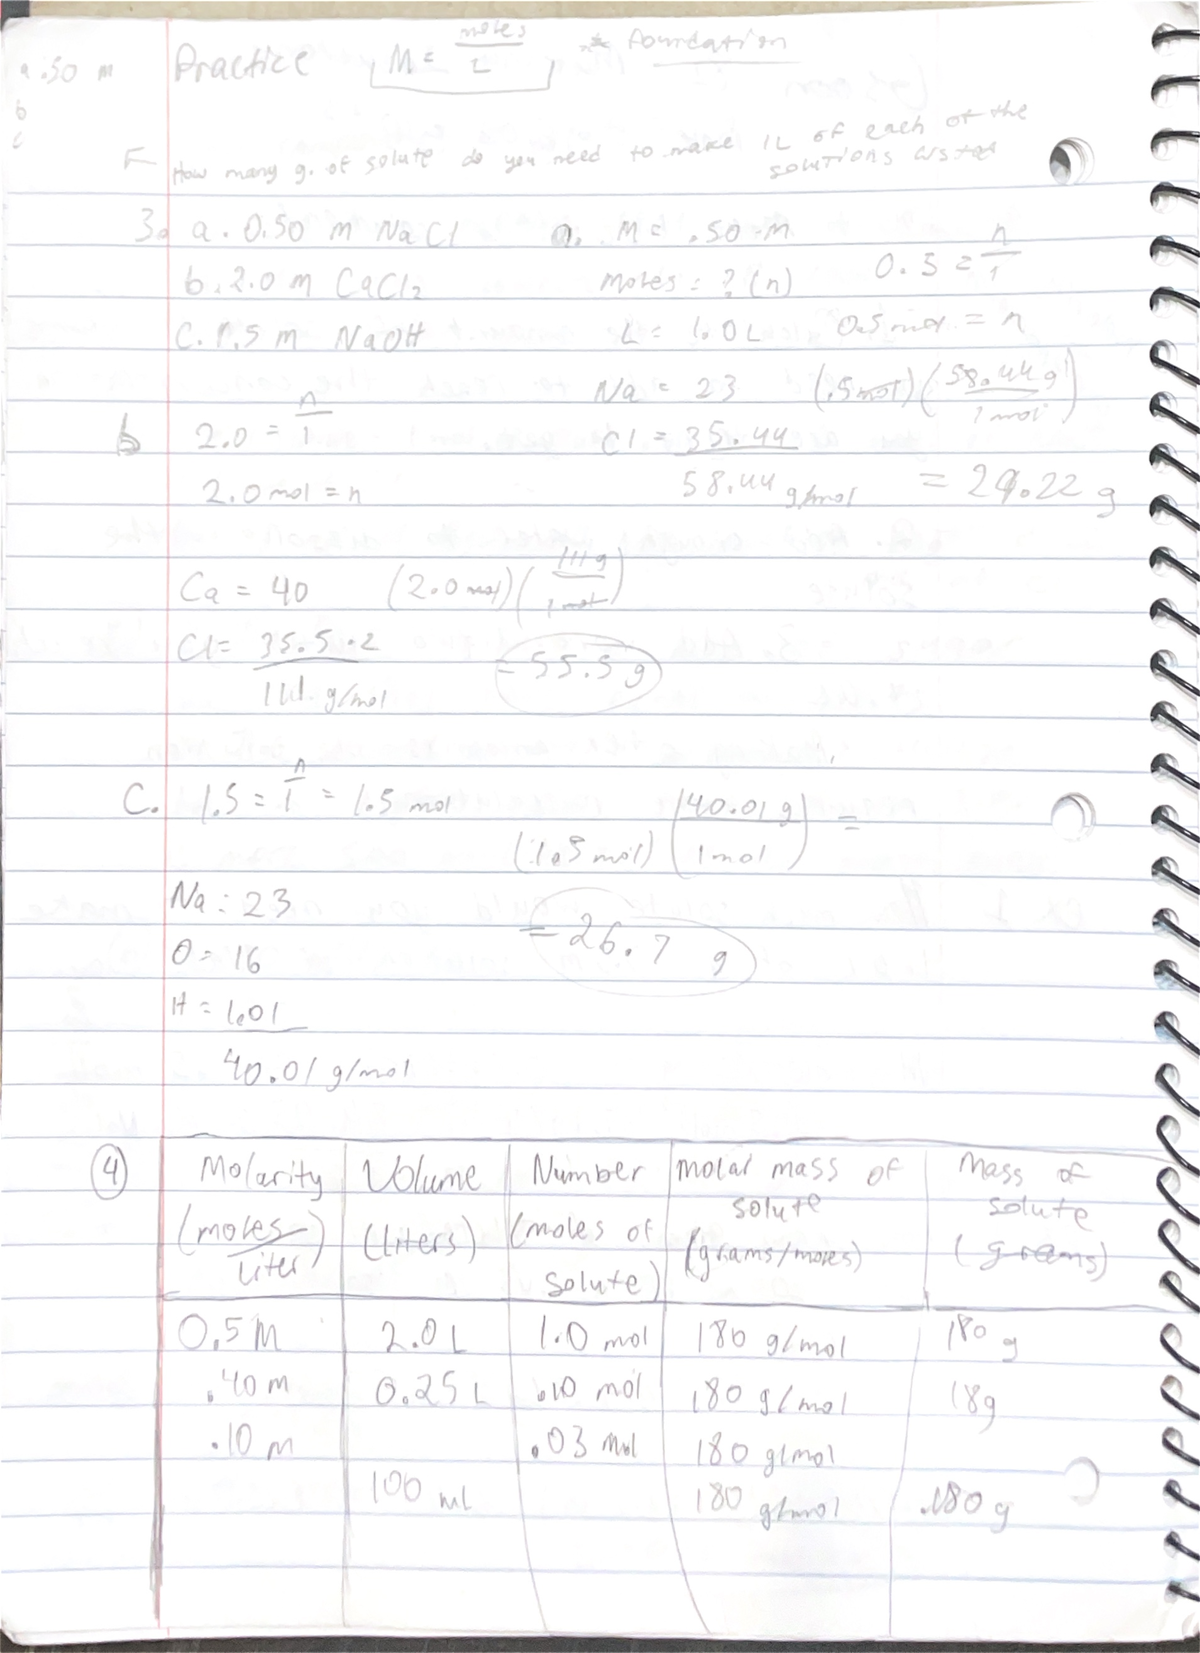 a .50 m Practice M = moles/L * foundation
b
c
How many g. of solute do you need to make 1L of each of the solutions listed
3. a. 0.50 m NaCl a. M = .50 M
b. 2.0 m CaCl2 moles = ? (n) 0.5 = n/1
C. 1.5 m NaOH L = 1.0 L 0.5 mol = n
Na = 23 (.5 mol) (58.44 g/1 mol)
b 2.0 = n/1 Cl = 35.44
2.0 mol = n 58.44 g/mol = 29.22 g
Ca = 40 (2.0 mol) (111 g/1 mol)
Cl = 35.5 · 2 = 55.5 g
111. g/mol
C. 1.5 = n/1 = 1.5 mol
(1.5 mol) (40.01 g/1 mol) =
Na = 23 = 26.7 g
O = 16
H = 1.01
40.01 g/mol
4 Molarity (moles/liter) Volume (liters) Number (moles of solute) molar mass of solute (grams/moles) Mass of solute (grams)
0.5 M 2.0 L 1.0 mol 180 g/mol 180 g
.40 m 0.25 L .10 mol 180 g/mol 18g
.10 m .03 mol 180 g/mol
100 mL 180 g/mol .180 g